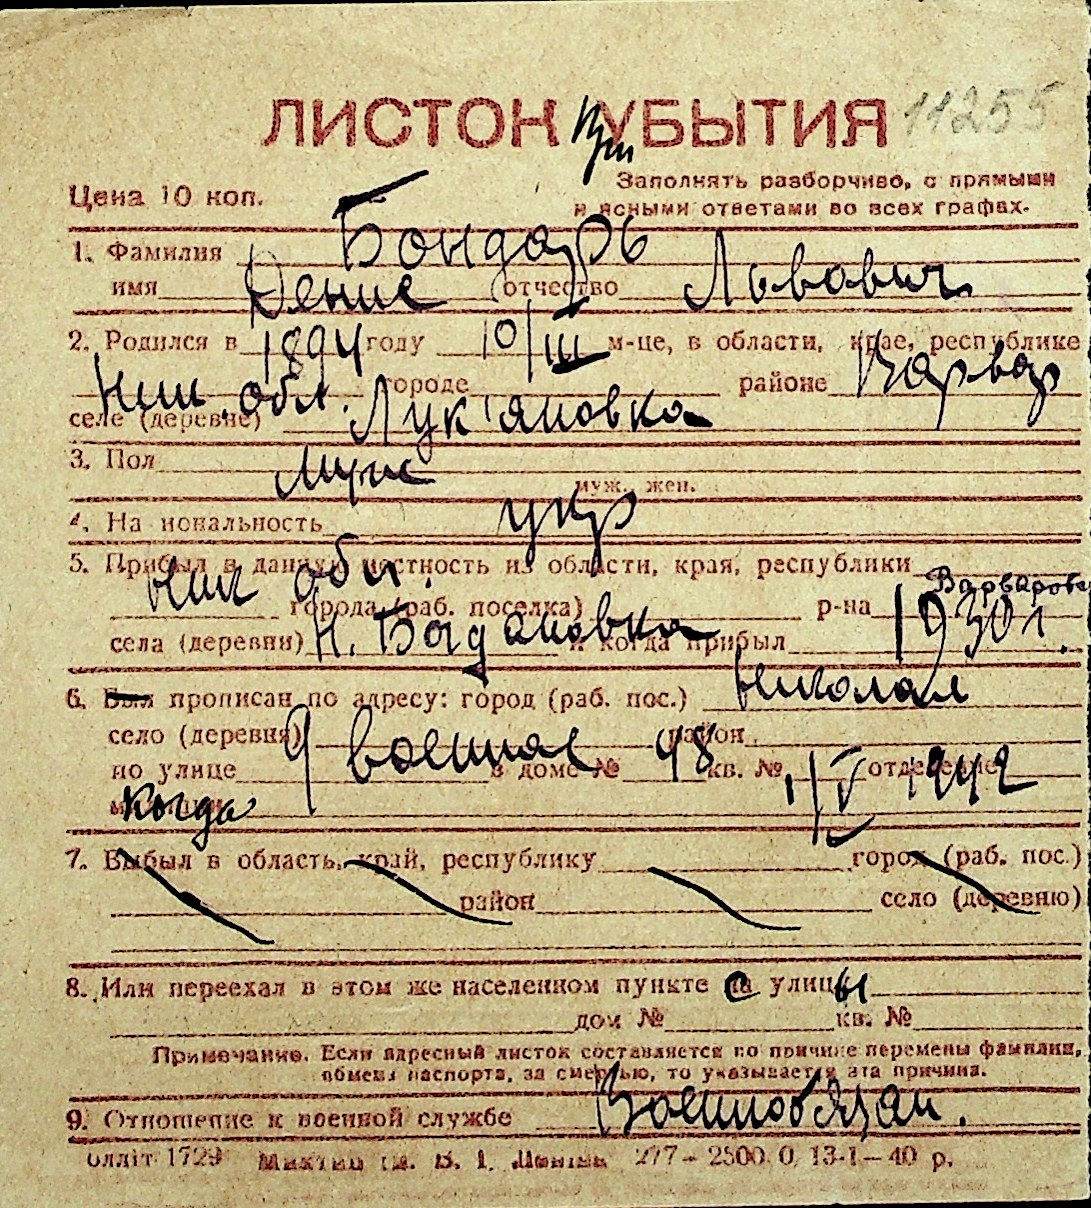 ЛИСТОК При УБЫТИЯ 11255
Цена 10 коп.
Заполнять разборчиво, с прямыми
и ясными ответами во всех графах.
1. Фамилия Бондарь
имя Денис отчество Львович
2. Родился в 1894 году 10/III м-це, в области, крае, республике
Ник. обл. городе районе Варвар
селе (деревне) Лук'яновка
3. Пол Муж
муж., жен.
4. На иональность укр
5. Прибыл в данную местность из области, края, республики
Ник обл. города (раб. поселка) р-на Варваров
села (деревни) Н. Богдановка и когда прибыл 1930 г.
6. Был прописан по адресу: город (раб. пос.) Николаев
село (деревня) район
по улице 9 военная в доме № 48 кв. № отделение
Когда 1/V 1942
7. Выбыл в область, край, республику город (раб. пос.)
район село (деревню)
8. Или переехал в этом же населенном пункте с улицы
дом № кв. №
Примечание. Если адресный листок составляется по причине перемены фамилии,
обмена паспорта, за смертью, то указывается эта причина.
9. Отношение к военной службе Военнообязан.
1729 277 – 2500 0, 13-1 – 40 р.